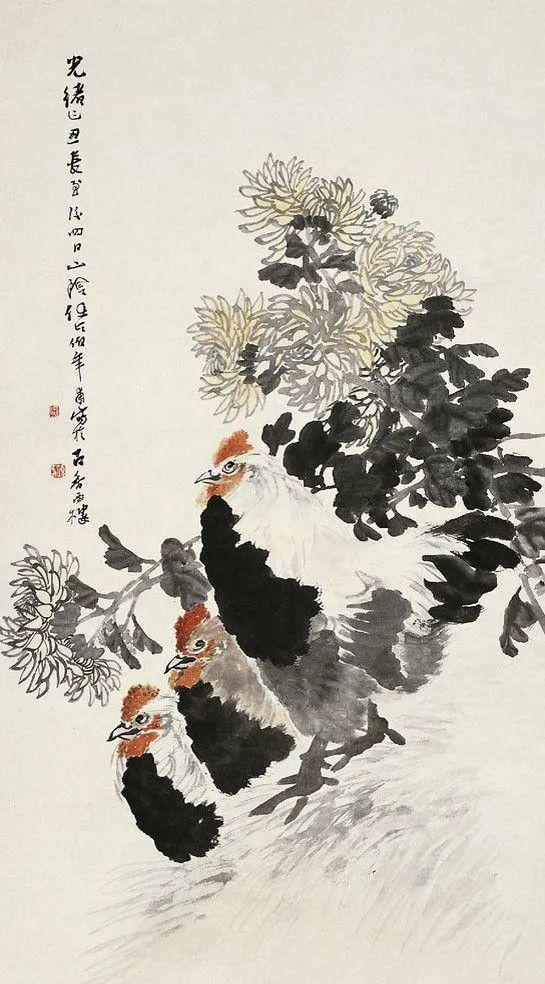 光緒己丑長至後四日山陰任頤伯年甫寫於古香樓